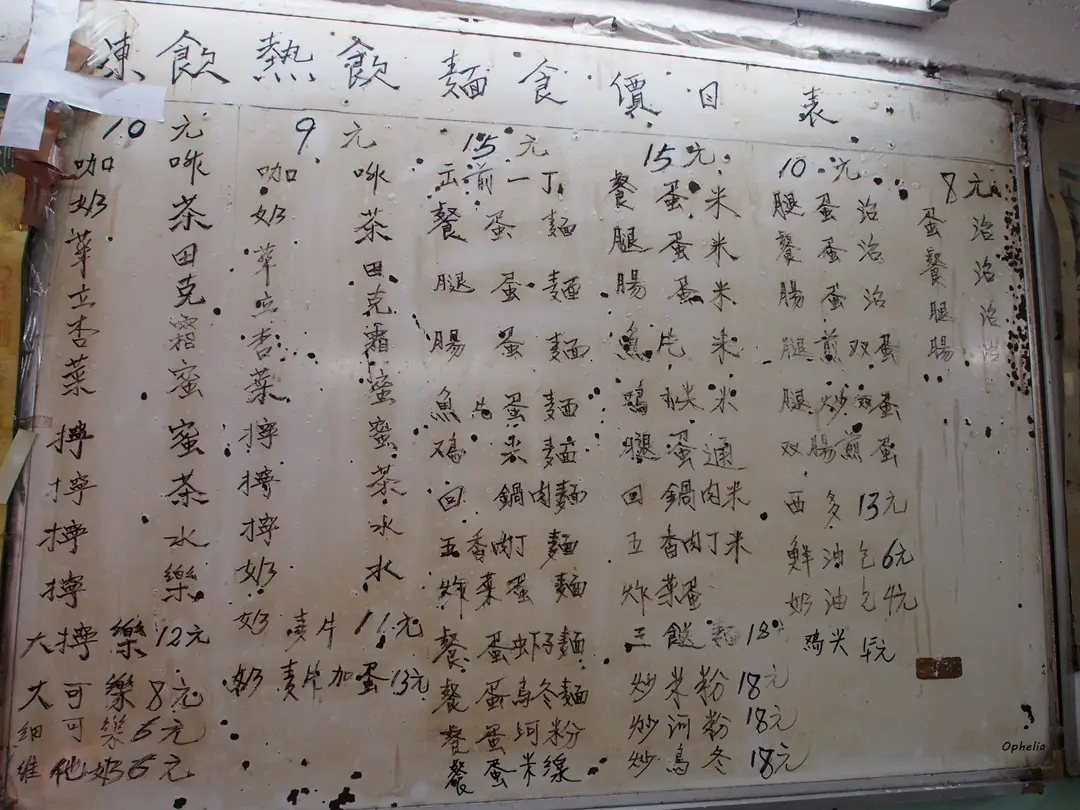 凍飲 熱飲 麵食 價目表
10元
咖啡
奶茶
華田
立克
杏霜
菜蜜
檸蜜
檸茶
檸水
檸樂
大檸樂12元
大可樂8元
細可樂6元
維他奶6元
9元
咖啡
奶茶
華田
立克
杏霜
菜蜜
檸蜜
檸茶
檸水
奶水
奶麦片11元
奶麦片加蛋13元
15元
前一丁
餐蛋麵
腿蛋麵
腸蛋麵
魚片蛋麵
鸡米麵
回鍋肉麵
五香肉丁麵
炸菜蛋麵
餐蛋虾子麵
餐蛋烏冬麵
餐蛋河粉
餐蛋米線
15元
餐蛋米
腿蛋米
腸蛋米
魚片米
鸡米
腿蛋通
回鍋肉米
五香肉丁米
炸菜蛋
三餸麵18元
炒米粉18元
炒河粉18元
炒烏冬18元
10元
腿蛋治
餐蛋治
腸蛋治
腿煎双蛋
腿炒双蛋
双腸煎蛋
西多13元
鮮油包6元
奶油包4元
8元
蛋治
餐治
腿治
腸治
Ophelia